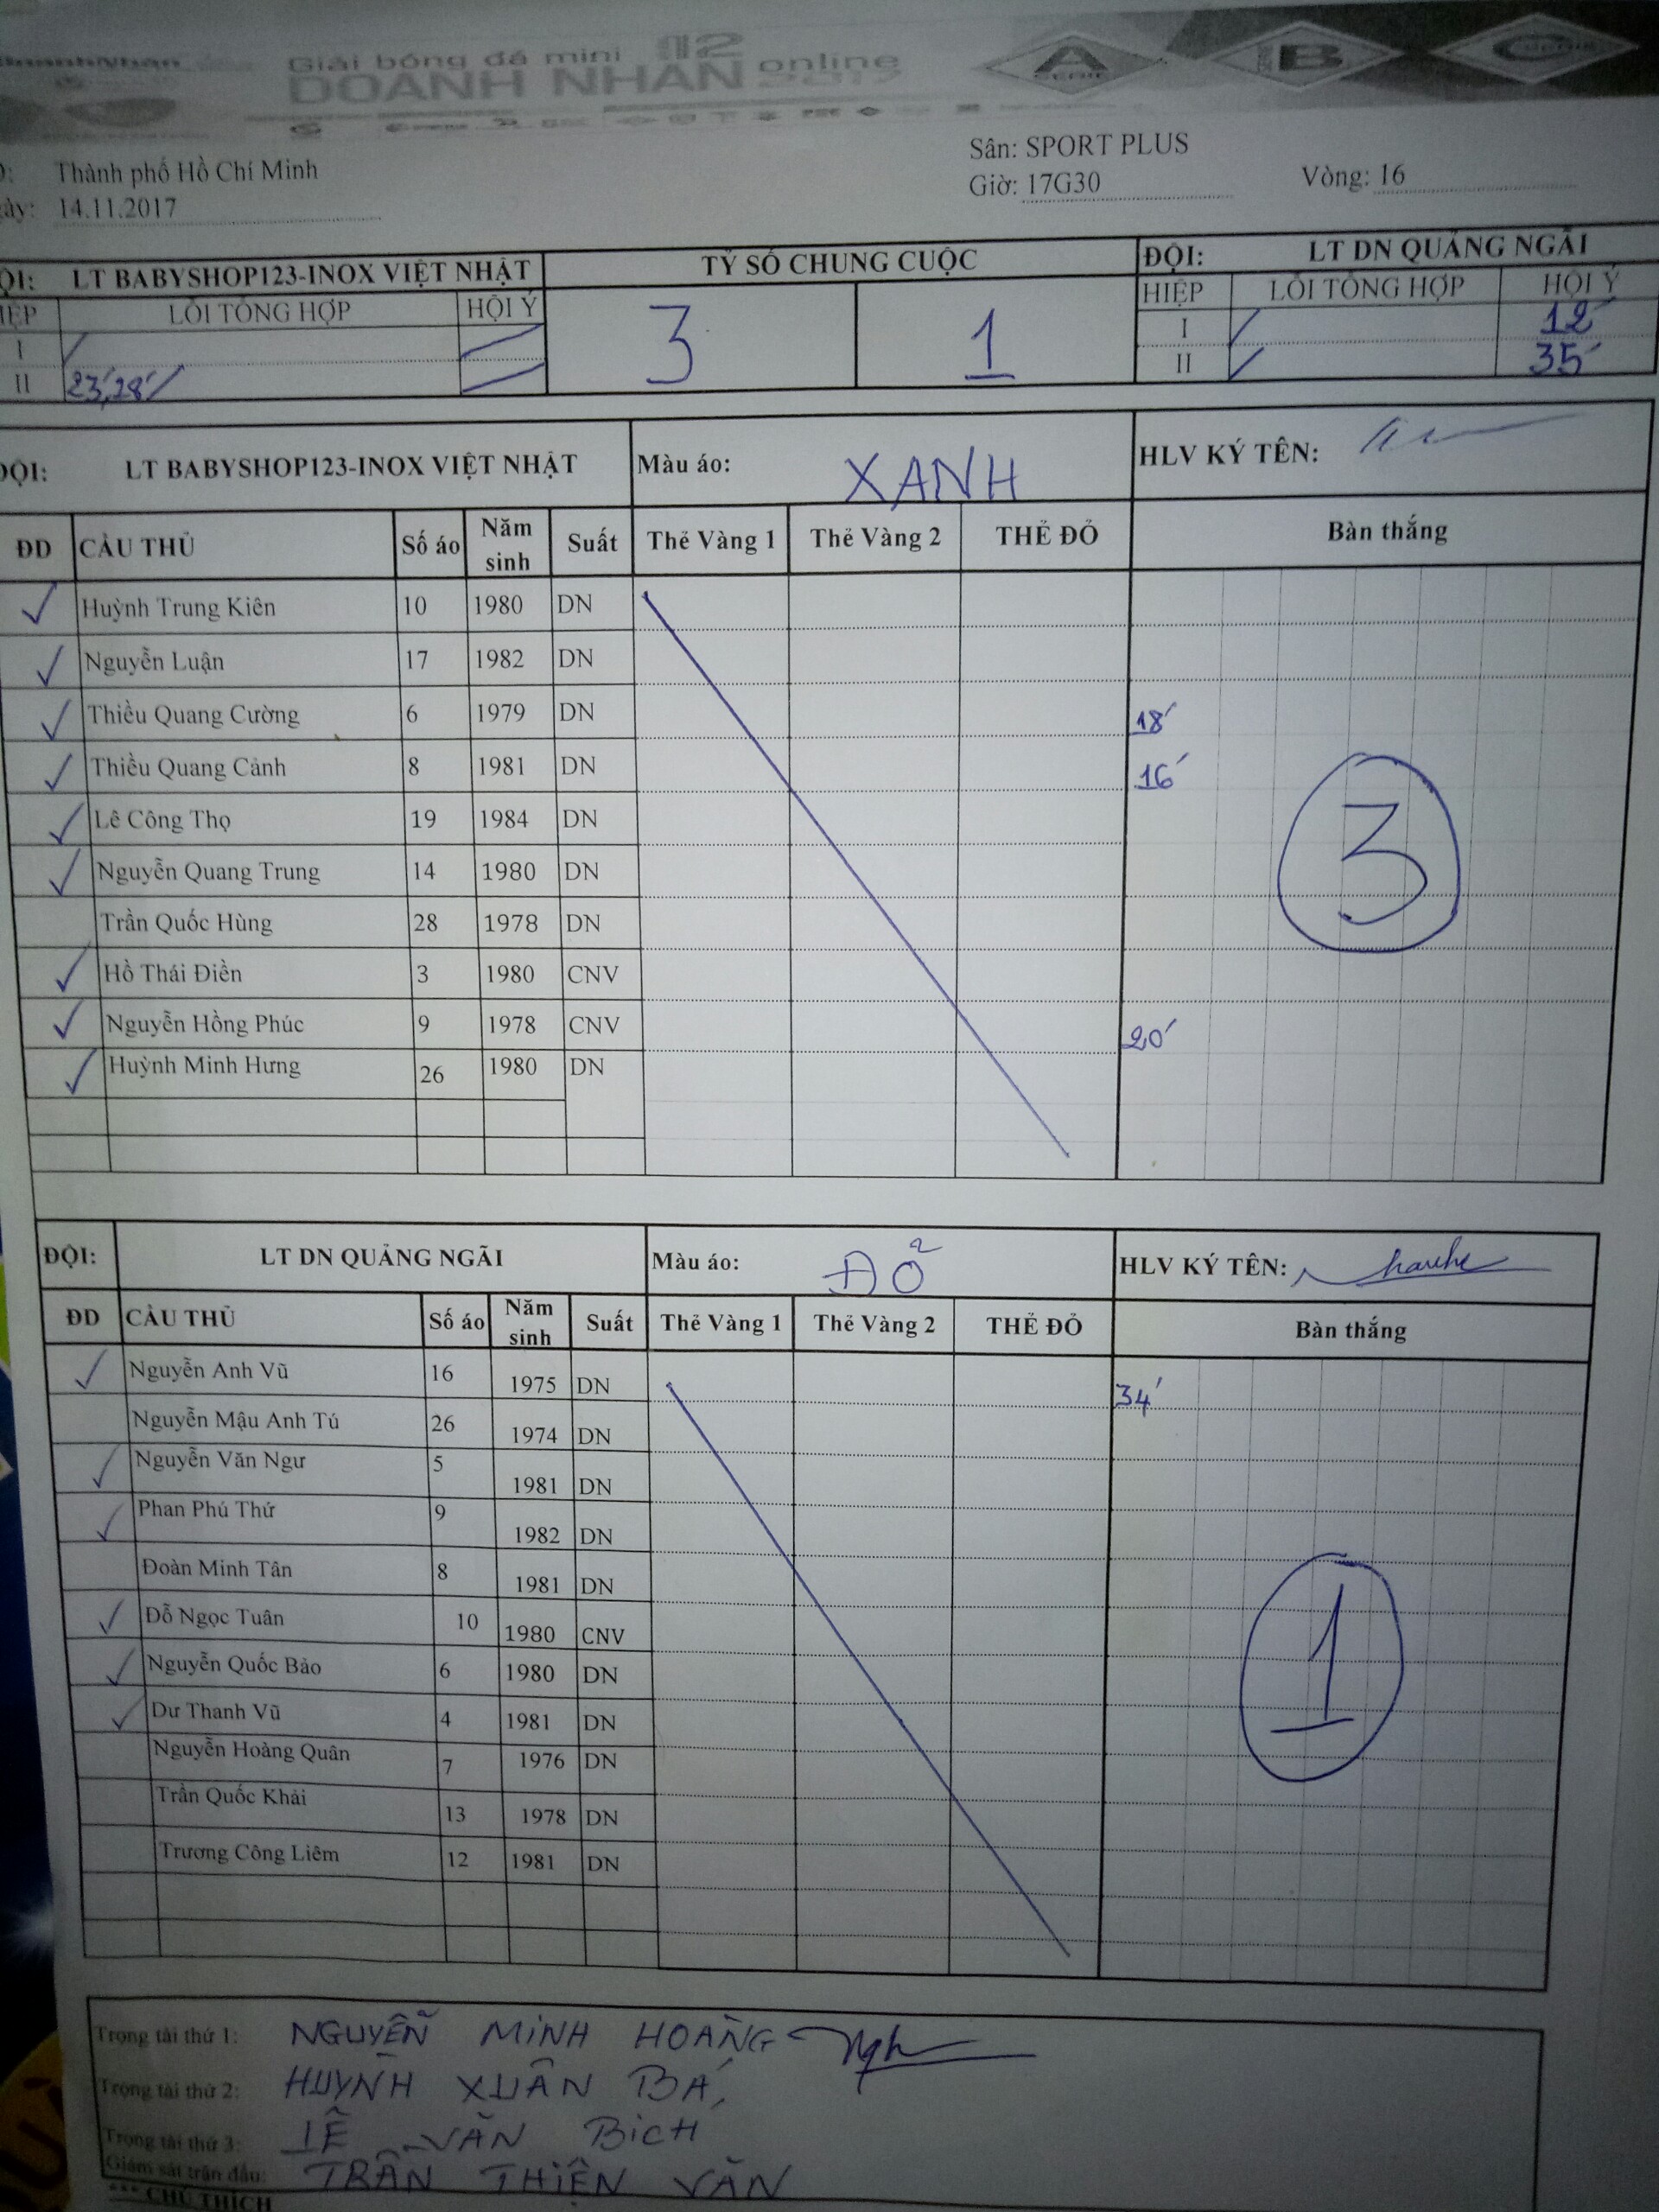 Giải bóng đá mini 112 online
DOANH NHÂN 2017
A B C
Thành phố Hồ Chí Minh
14.11.2017
Sân: SPORT PLUS
Giờ: 17G30
Vòng: 16
LT BABYSHOP123-INOX VIỆT NHẬT TỶ SỐ CHUNG CUỘC ĐỘI: LT DN QUẢNG NGÃI
LỖI TỔNG HỢP HỘI Ý 3 1 HIỆP LỖI TỔNG HỢP HỘI Ý
I I 12'
II 23',28' II 35'
ĐỘI: LT BABYSHOP123-INOX VIỆT NHẬT Màu áo: XANH HLV KÝ TÊN:
ĐD CẦU THỦ Số áo Năm sinh Suất Thẻ Vàng 1 Thẻ Vàng 2 THẺ ĐỎ Bàn thắng
Huỳnh Trung Kiên 10 1980 DN
Nguyễn Luận 17 1982 DN
Thiều Quang Cường 6 1979 DN 18'
Thiều Quang Cảnh 8 1981 DN 16'
Lê Công Thọ 19 1984 DN
Nguyễn Quang Trung 14 1980 DN 3
Trần Quốc Hùng 28 1978 DN
Hồ Thái Điền 3 1980 CNV
Nguyễn Hồng Phúc 9 1978 CNV 20'
Huỳnh Minh Hưng 26 1980 DN
ĐỘI: LT DN QUẢNG NGÃI Màu áo: ĐỎ HLV KÝ TÊN:
ĐD CẦU THỦ Số áo Năm sinh Suất Thẻ Vàng 1 Thẻ Vàng 2 THẺ ĐỎ Bàn thắng
Nguyễn Anh Vũ 16 1975 DN 34'
Nguyễn Mậu Anh Tú 26 1974 DN
Nguyễn Văn Ngư 5 1981 DN
Phan Phú Thứ 9 1982 DN
Đoàn Minh Tân 8 1981 DN
Đỗ Ngọc Tuân 10 1980 CNV
Nguyễn Quốc Bảo 6 1980 DN 1
Dư Thanh Vũ 4 1981 DN
Nguyễn Hoàng Quân 7 1976 DN
Trần Quốc Khải 13 1978 DN
Trương Công Liêm 12 1981 DN
Trọng tài thứ 1: NGUYỄN MINH HOÀNG
Trọng tài thứ 2: HUỲNH XUÂN BÁ
Trọng tài thứ 3: LÊ VĂN BÍCH
Giám sát trận đấu: TRẦN THIỆN VĂN
*** CHÚ THÍCH